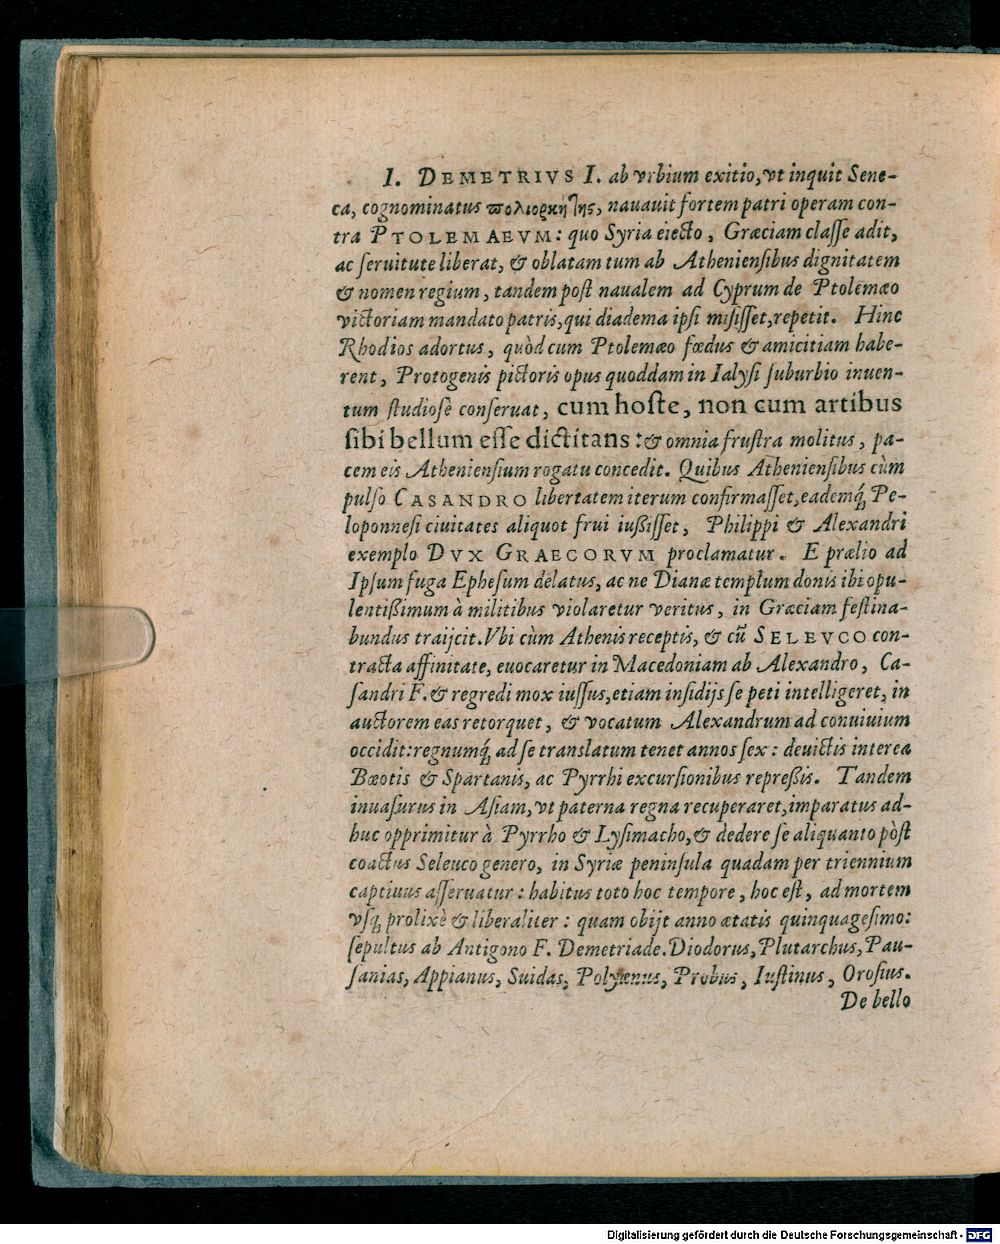 I. DEMETRIVS I. ab vrbium exitio, vt inquit Sene-
ca, cognominatus πολιορκητὴς, nauauit fortem patri operam con-
tra PTOLEMAEVM: quo Syria eiecto, Græciam classe adit,
ac seruitute liberat, & oblatam tum ab Atheniensibus dignitatem
& nomen regium, tandem post naualem ad Cyprum de Ptolemæo
victoriam mandato patris, qui diadema ipsi misisset, repetit. Hinc
Rhodios adortus, quòd cum Ptolemæo fœdus & amicitiam habe-
rent, Protogenis pictoris opus quoddam in Ialysi suburbio inuen-
tum studiosè conseruat, cum hoste, non cum artibus
sibi bellum esse dictitans: & omnia frustra molitus, pa-
cem eis Atheniensium rogatu concedit. Quibus Atheniensibus cùm
pulso CASANDRO libertatem iterum confirmasset, eademq́; Pe-
loponnesi ciuitates aliquot frui iußisset, Philippi & Alexandri
exemplo DVX GRAECORVM proclamatur. E prælio ad
Ipsum fuga Ephesum delatus, ac ne Dianæ templum donis ibi opu-
lentißimum à militibus violaretur veritus, in Græciam festina-
bundus traijcit. Vbi cùm Athenis receptis, & cū SELEVCO con-
tracta affinitate, euocaretur in Macedoniam ab Alexandro, Ca-
sandri F. & regredi mox iussus, etiam insidijs se peti intelligeret, in
auctorem eas retorquet, & vocatum Alexandrum ad conuiuium
occidit: regnumq́; ad se translatum tenet annos sex: deuictis interea
Bæotis & Spartanis, ac Pyrrhi excursionibus repreßis. Tandem
inuasurus in Asiam, vt paterna regna recuperaret, imparatus ad-
huc opprimitur à Pyrrho & Lysimacho, & dedere se aliquanto pòst
coactus Seleuco genero, in Syriæ peninsula quadam per triennium
captiuus asseruatur: habitus toto hoc tempore, hoc est, ad mortem
vsq́; prolixè & liberaliter: quam obijt anno ætatis quinquagesimo:
sepultus ab Antigono F. Demetriade. Diodorus, Plutarchus, Pau-
sanias, Appianus, Suidas, Polyænus, Probus, Iustinus, Orosius.
De bello
Digitalisierung gefördert durch die Deutsche Forschungsgemeinschaft - DFG